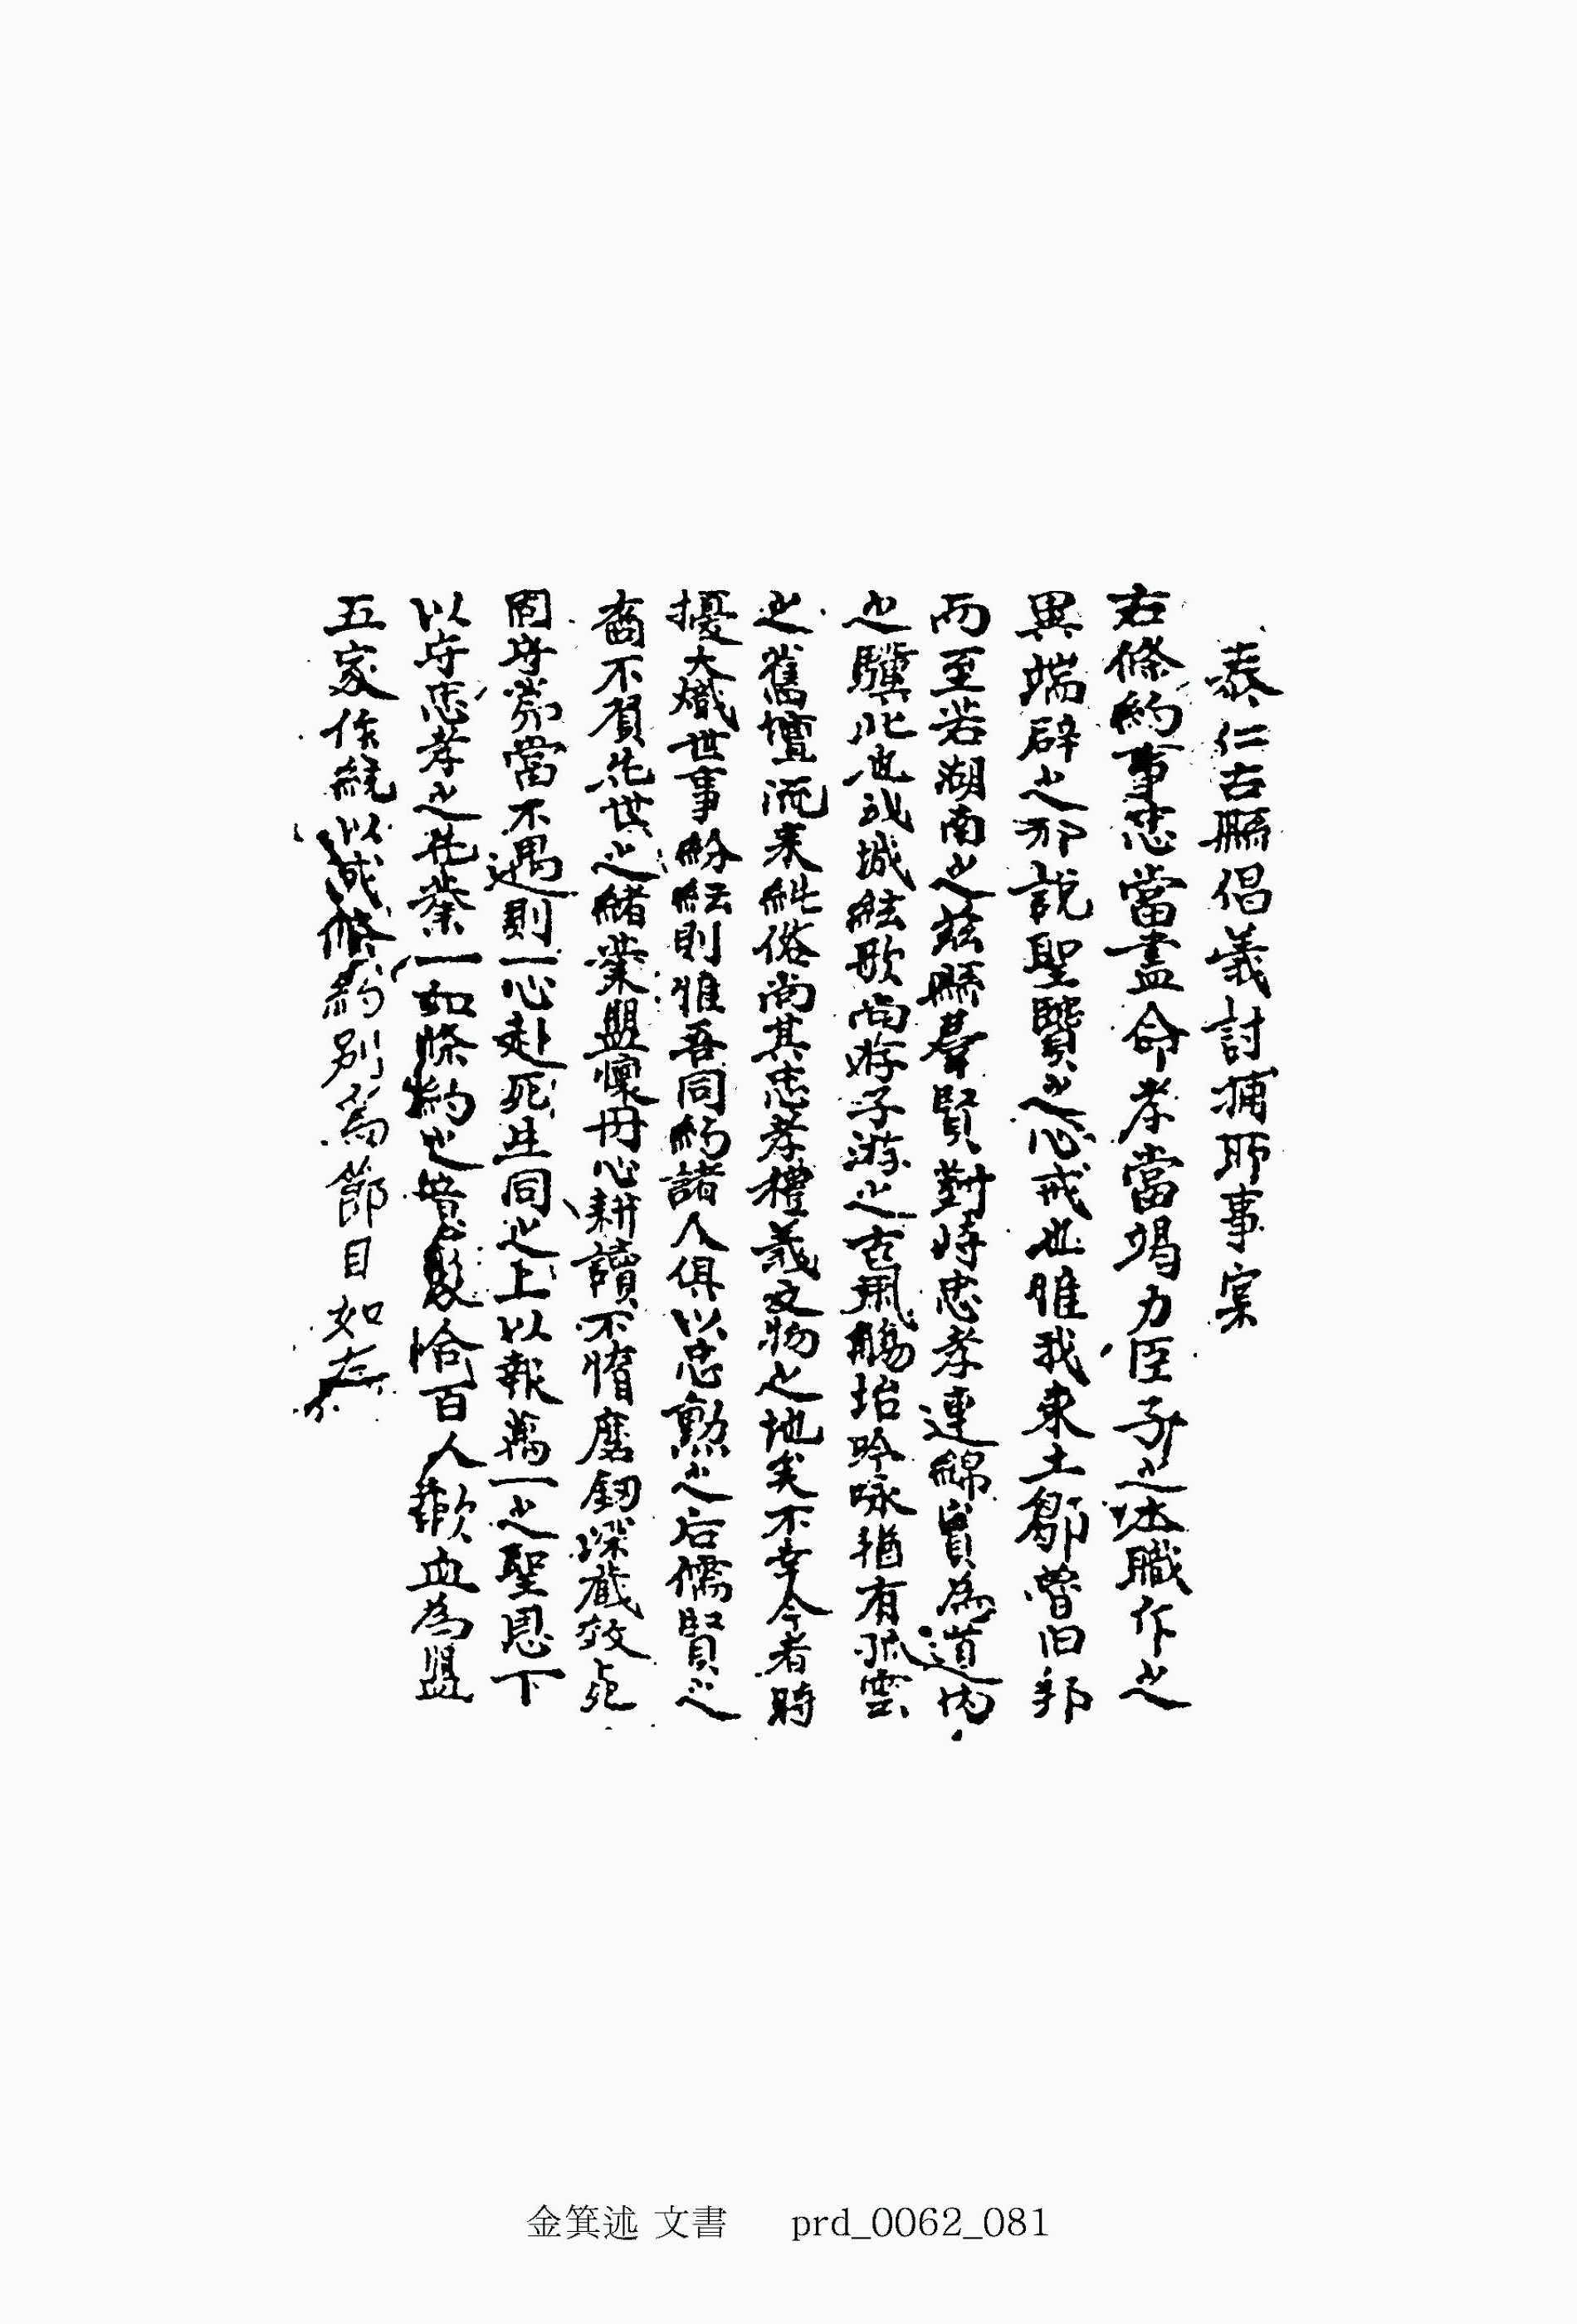 泰仁古縣倡義討捕所事案
右條約事忠當盡命孝當竭力臣子之法職作之
異端辟之邪說聖賢之心戒也惟我東土鄒魯旧邦
而至若湖南之玆縣羣賢對峙忠孝連綿實為道內
之驥北也武城絃歌尚好子游之古風觴坮吟咏猶有孤雲
之舊壇流来純俗尚其忠孝禮義文物之地矣不幸今者時
擾大熾世事紛紜則惟吾同約諸人俱以忠勳之后儒賢之
裔不負先世之緒業盟懷丹心耕讀不惰磨釼深藏效死
固守常當不遇則一心赴死生同之上以報萬一之聖恩下
以守忠孝之先業一如條約也 恰百人歃血為盟
五家作統以成條約別為節目如左
金箕述 文書 prd_0062_081